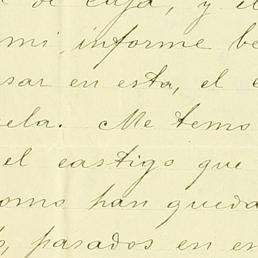 de caja, y el
mi informe be
sar en esta, el c
ela. Me temo
el castigo que
omo han queda
, pasados en en